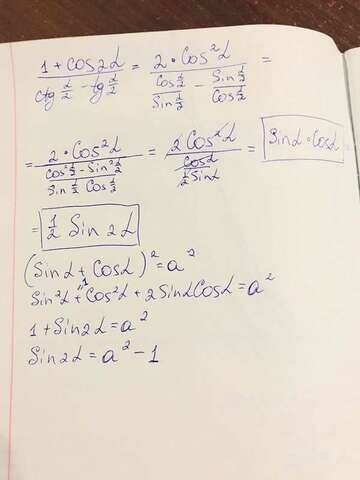 (1 + Cos2α)/(ctg α/2 - tg α/2) = (2 · Cos²α)/((Cos α/2)/(Sin α/2) - (Sin α/2)/(Cos α/2)) =
= (2 · Cos²α)/((Cos² α/2 - Sin² α/2)/(Sin α/2 Cos α/2)) = (2 Cos²α)/((Cosα)/(1/2 Sinα)) = Sinα · Cosα =
= 1/2 Sin 2α
(Sinα + Cosα)² = a²
Sin²α + Cos²α + 2SinαCosα = a²
1 + Sin2α = a²
Sin2α = a² - 1